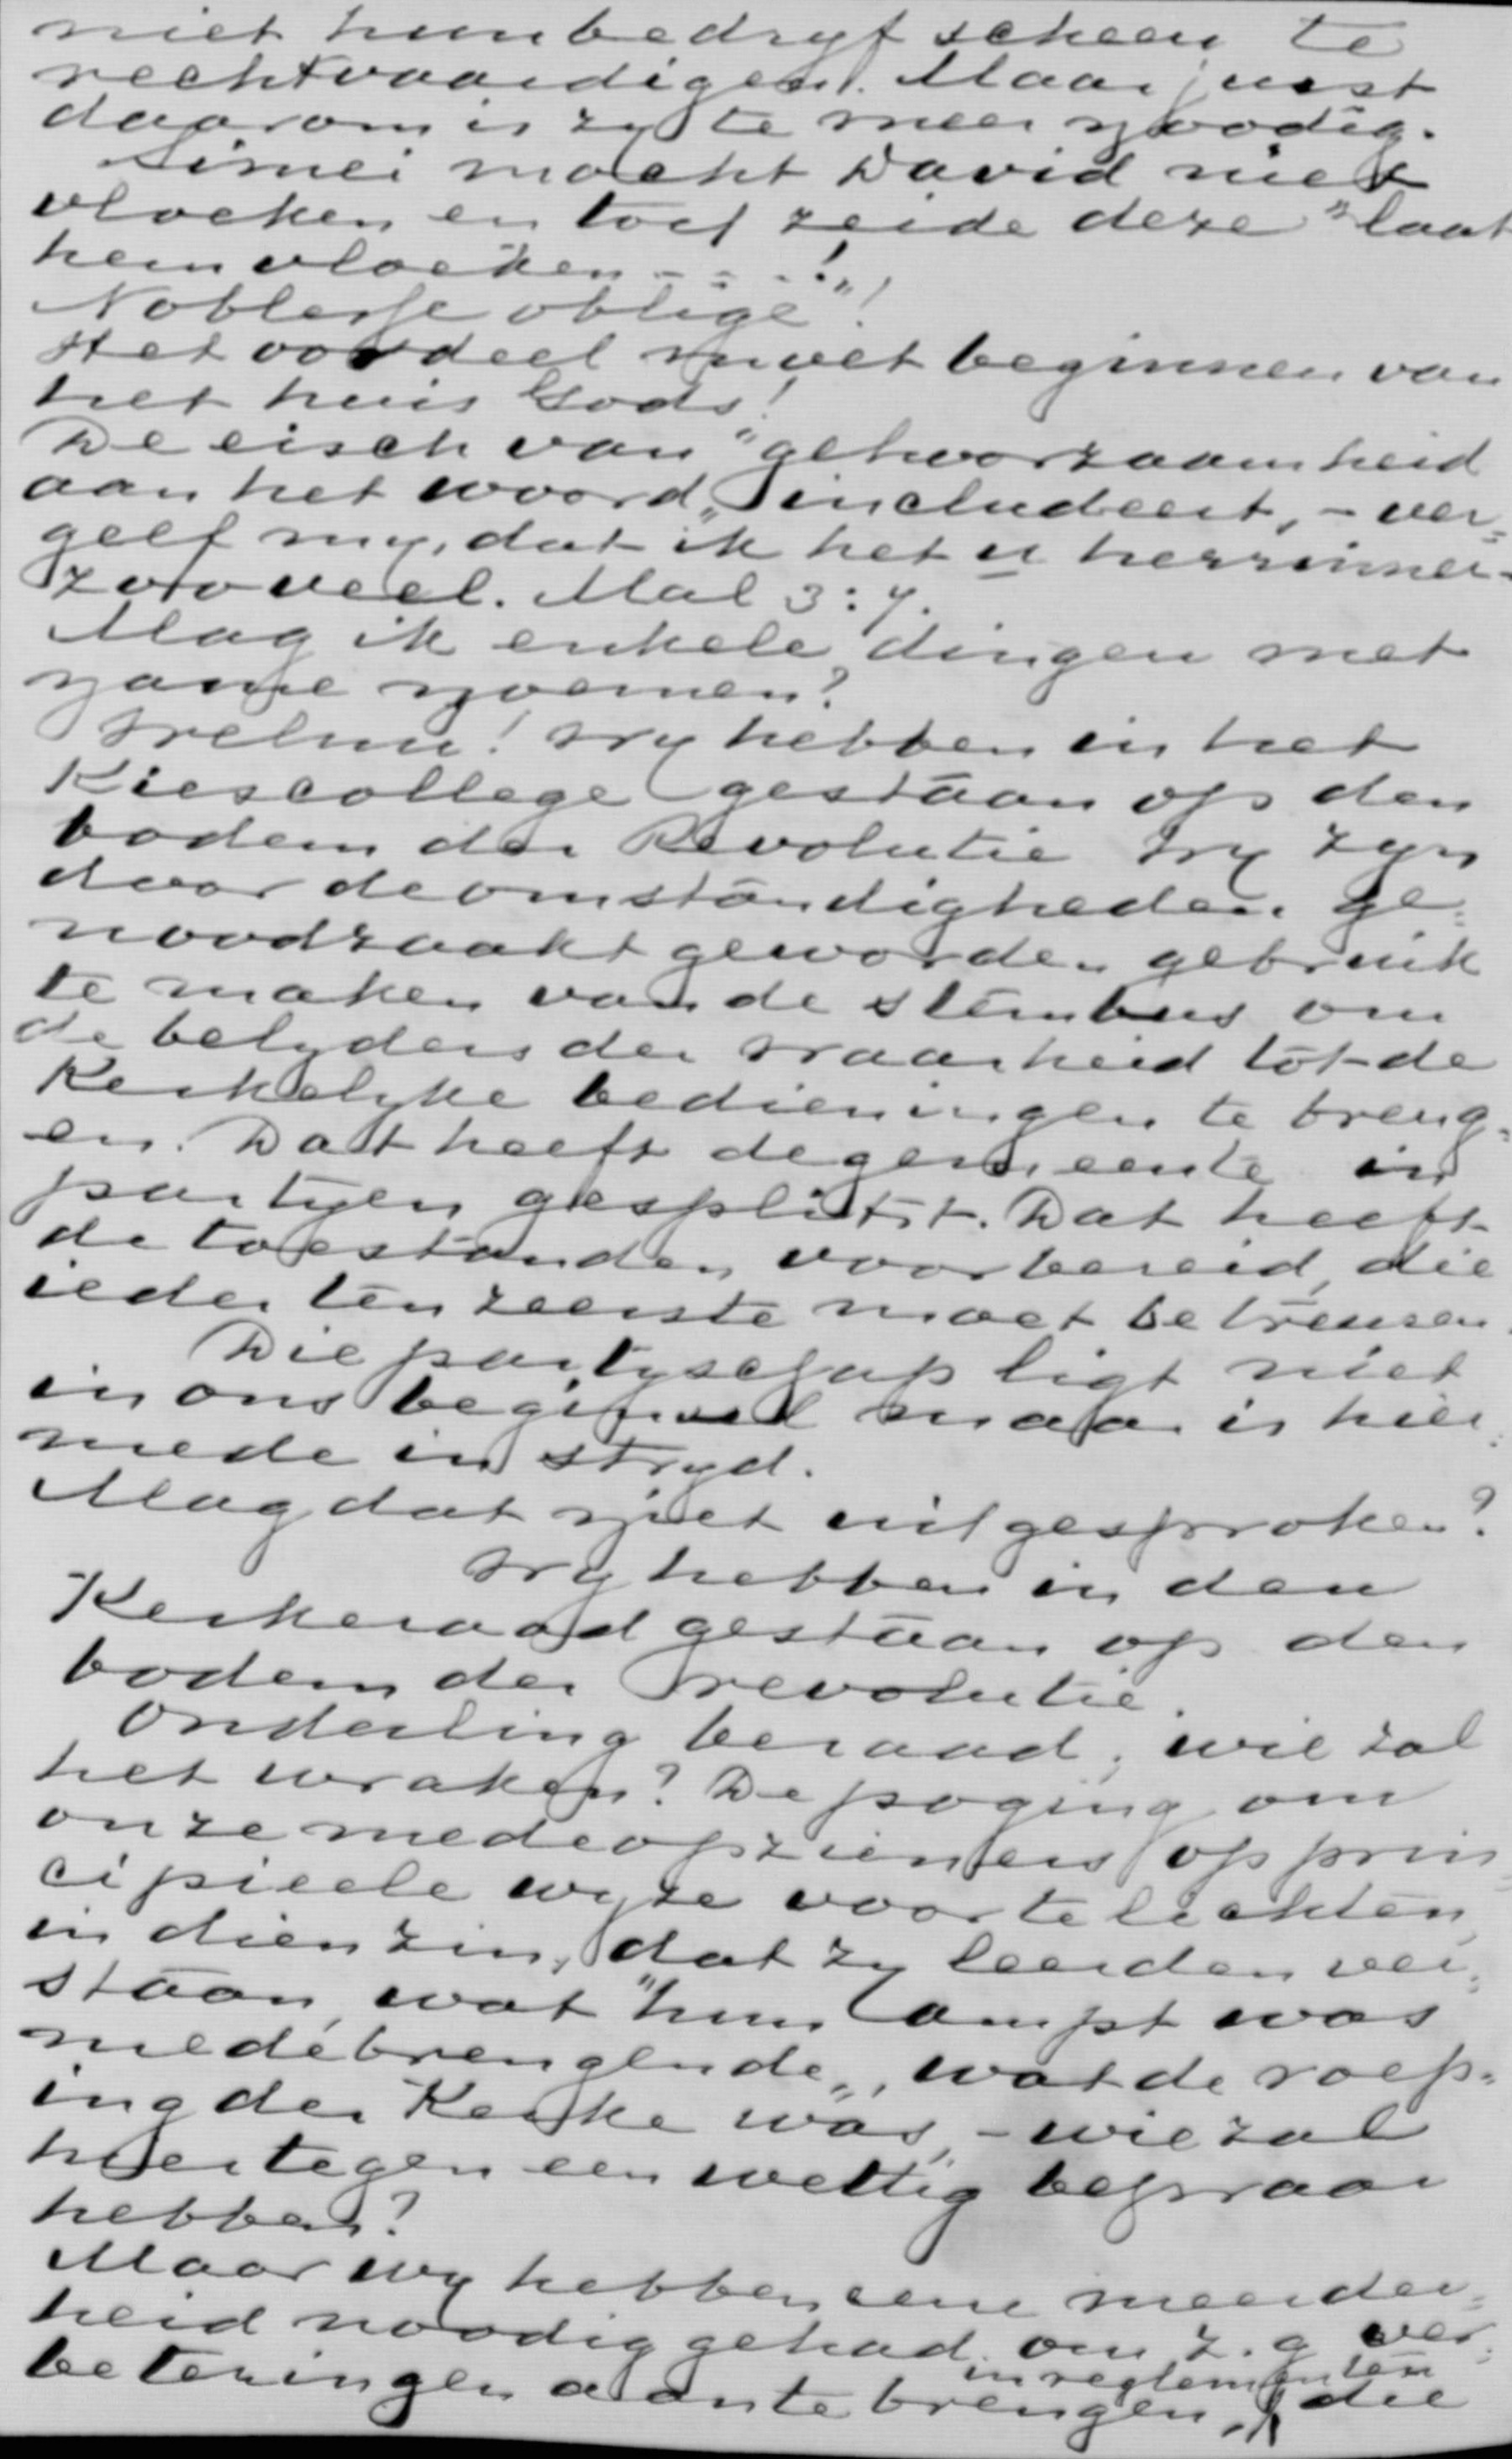 niet hun bedryf scheen te
rechtvaardigen. Maar juist
daarom is zy te meer noodig.
Simei mocht David niet
vloeken en toch zeide deze "laat
hem vloeken - - - -!"
Noblesse oblige"!
Het oordeel moet beginnen van
het huis Gods!
De eisch van "gehoorzaamheid
aan het woord„ includeert, - ver=
geef my, dat ik het u herinner -
zooveel. Mal 3:7.
Mag ik enkele dingen met
name noemen?
Welnu! Wy hebben in het
Kiescollege gestaan op den
bodem der Revolutie Wy zyn
door de omstandigheden ge=
noodzaakt geworden gebruik
te maken van de stembus om
de belyders der waarheid tot de
Kerkelyke bedieningen te breng=
en. Dat heeft de gemeente in
partyen gesplitst. Dat heeft
de toestanden voorbereid, die
ieder ten zeerste moet betreuren.
Die partyschap ligt niet
in ons beginsel maar is hier=
mede in stryd.
Mag dat niet uitgesproken?
Wy hebben in den
Kerkeraad gestaan op den
bodem der revolutie.
Onderling beraad, wie zal
het wraken? De poging om
onze medeopzieners op prin=
cipieele wyze voor te lichten,
in dien zin, dat zy leerden ver=
staan, wat "hun ampt was
medebrengende„, wat de roep=
ing der Kerke was, - wie zal
hiertegen een wettig bezwaar
hebben?
Maar wy hebben eene meerder=
heid noodig gehad om z.g ver=
beteringen in reglementen aan te brengen, die